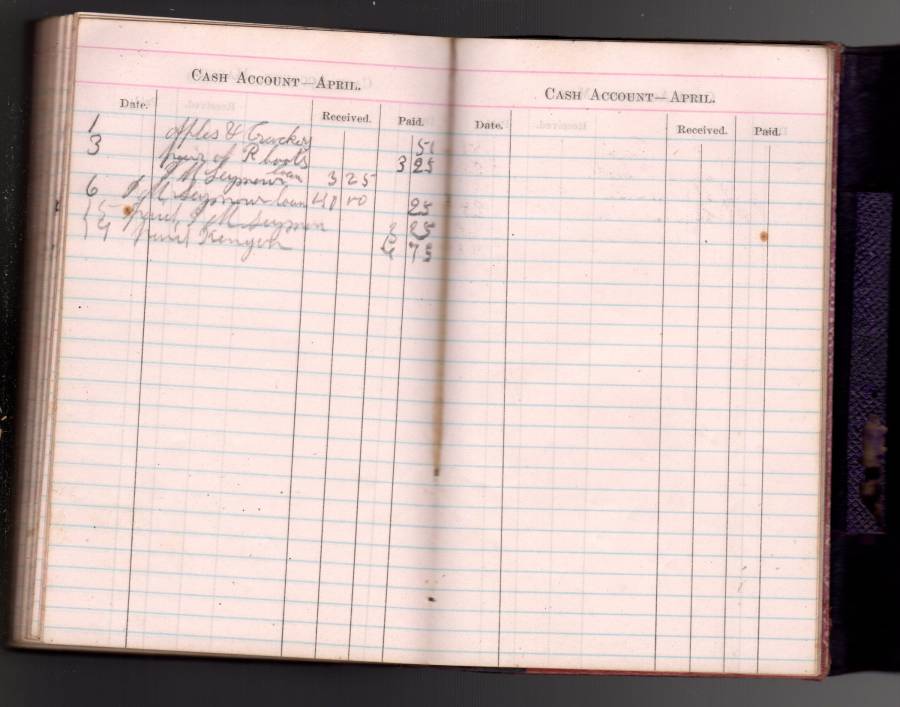 CASH ACCOUNT—APRIL.
Date. Received. Paid.
1 aples & Crackers 51
3 pair of R boots 3 25
J M Seymour loan 3 25
6 J M Seymour loan 40 00 25
J M Seymour 2 25
Kenyon 4 75
CASH ACCOUNT—APRIL.
Date. Received. Paid.